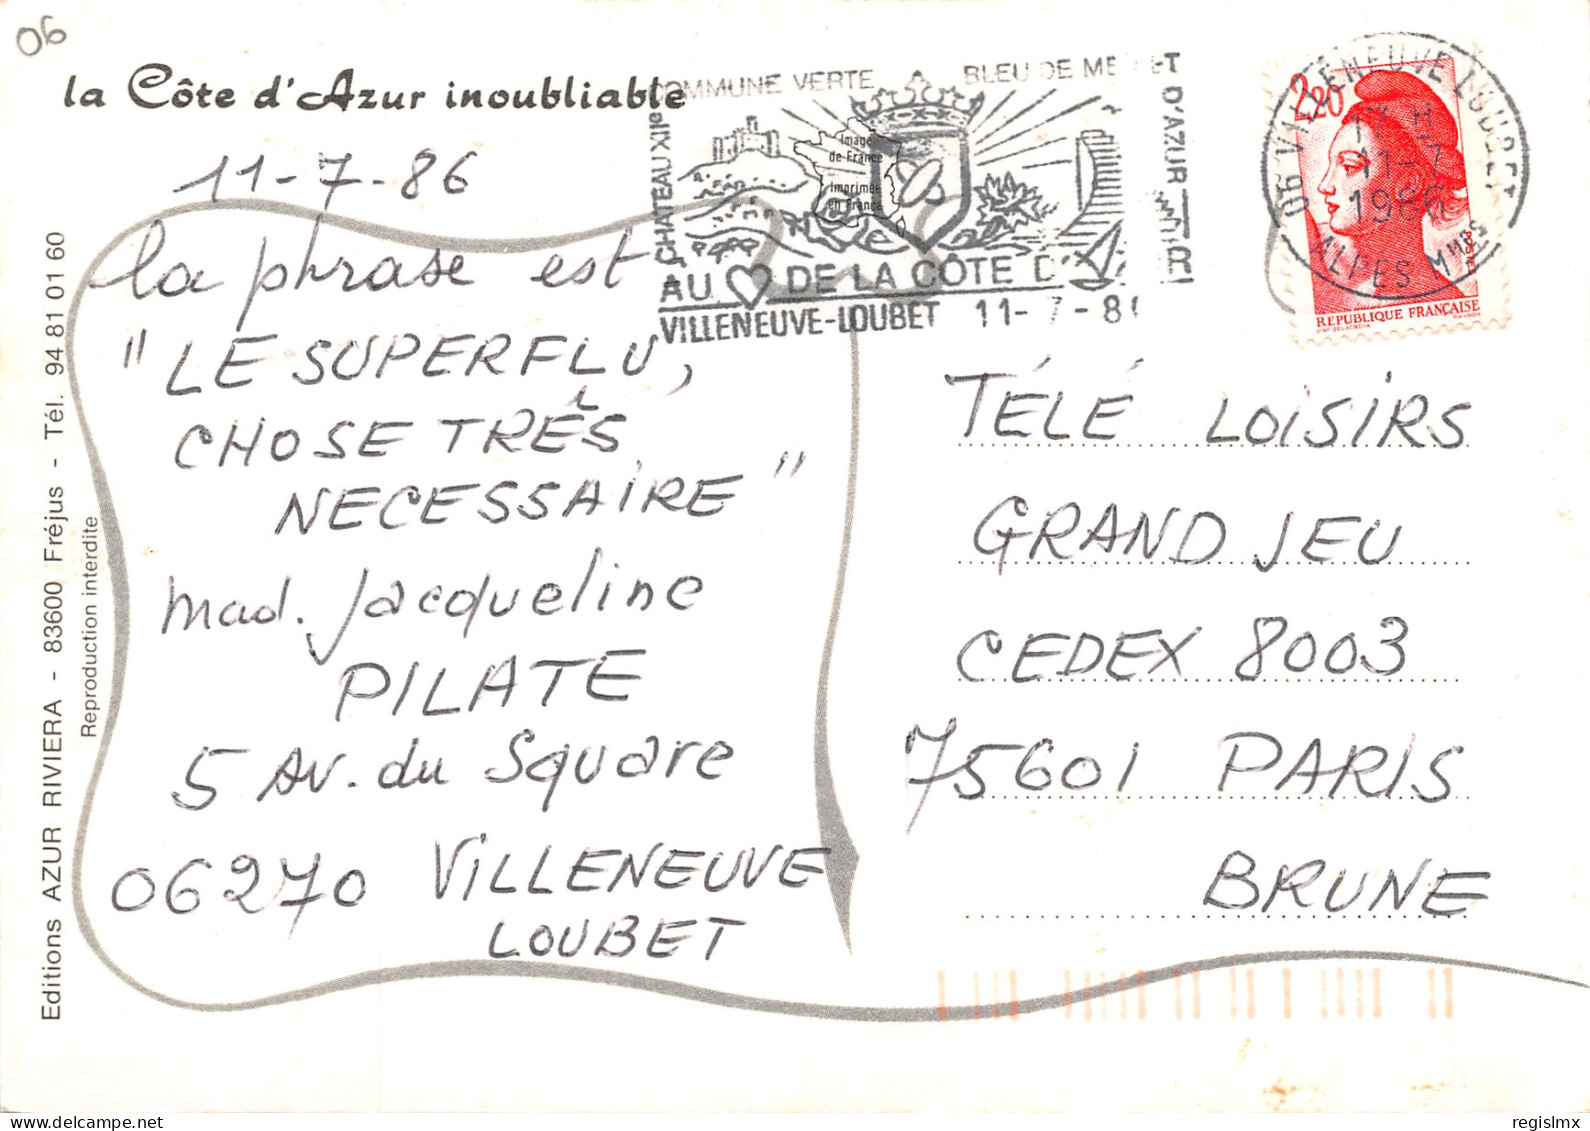 06
la Côte d'Azur inoubliable
11-7-86
la phrase est
"LE SUPERFLU,
CHOSE TRÈS
NECESSAIRE"
mad. Jacqueline
PILATE
5 Av. du Square
06270 VILLENEUVE
LOUBET
Editions AZUR RIVIERA - 83600 Fréjus - Tél. 94 81 01 60
Reproduction interdite
COMMUNE VERTE BLEU DE ME
CHATEAU XIIe
D'AZUR
Image
de France
Imprimée
en France
AU DE LA CÔTE D'
VILLENEUVE-LOUBET 11-7-8
06 VILLENEUVE LOUBET
17 H
11-7
1986
ALPES MMES
2,20
REPUBLIQUE FRANÇAISE
D'AP DELACROIX
GANDON
TÉLÉ LOISIRS
GRAND JEU
CEDEX 8003
75601 PARIS
BRUNE
©regislmx